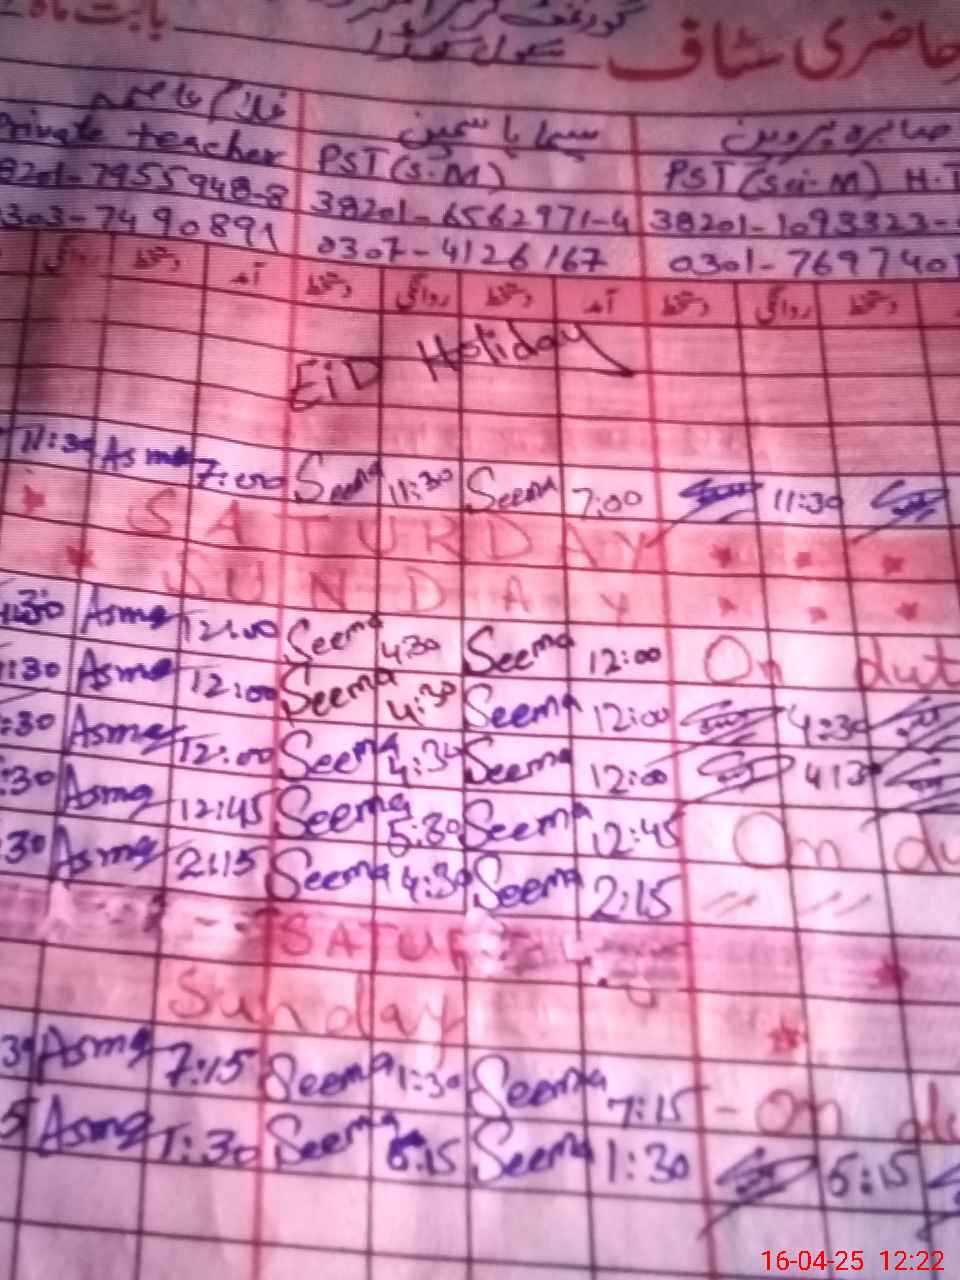 حاضری سٹاف
بابت ماہ
گورنمنٹ گرلز
سکول
صابرہ پروین سیما یاسمین
Private teacher PST (S.M) PST (Sci-M) H.T
8201-7955948-8 38201-6562971-4 38201-1093323-
0303-7490891 0307-4126167 0301-769740
روانگی دستخط آمد دستخط روانگی دستخط آمد دستخط روانگی دستخط
EiD Holiday
11:30 Asma 7:00 Seema 11:30 Seema 7:00 11:30
SATURDAY
SUNDAY
Asma 12:00 Seema 4:30 Seema 12:00 On dut
:30 Asma 12:00 Seema 4:30 Seema 12:00 4:30
:30 Asma 12:00 Seema 4:30 Seema 12:00 4:30
:30 Asma 12:45 Seema 5:30 Seema 12:45 On du
30 Asma 2:15 Seema 4:30 Seema 2:15 〃 〃
SATUR
Sunday
30 Asma 7:15 Seema 1:30 Seema 7:15 - On du
5 Asma 1:30 Seema 5:15 Seema 1:30 5:15
16-04-25 12:22